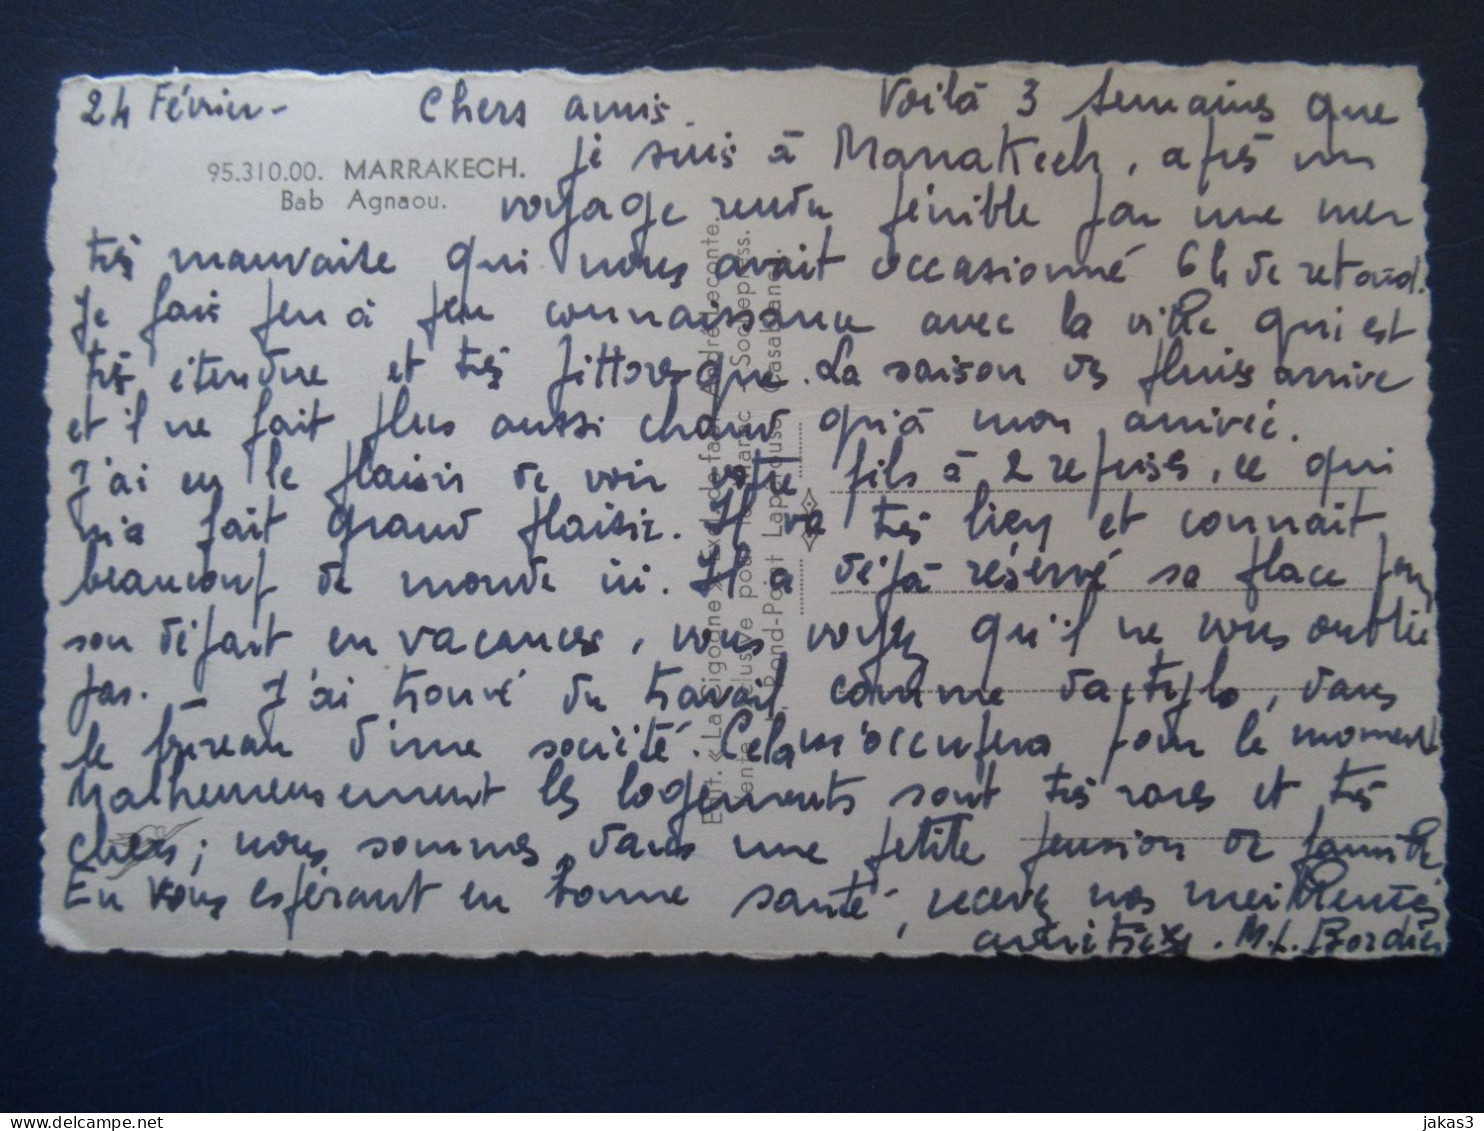 24 Février - Chers amis. Voilà 3 semaines que
je suis à Marrakech, après un
95.310.00. MARRAKECH.
Bab Agnaou.
voyage rendu pénible par une mer
très mauvaise qui nous avait occasionné 6h de retard.
Je fais peu à peu connaissance avec la ville qui est
très étendue et très pittoresque. La saison des pluies arrive
et il ne fait plus aussi chaud qu'à mon arrivée.
J'ai eu le plaisir de voir votre fils à 2 reprises, ce qui
m'a fait grand plaisir. Il va très bien et connait
beaucoup de monde ici. Il a déjà réservé sa place pour
son départ en vacances, vous voyez qu'il ne vous oublie
pas. - J'ai trouvé du travail comme dactylo, dans
le bureau d'une société. Cela m'occupera pour le moment
Malheureusement les logements sont très rares et très
chers; nous sommes dans une petite pension de famille
En vous espérant en bonne santé, recevez nos meilleures
amitiés. M.L. Bordier
Edit. « La Cigogne » Excl. de fab. André Leconte.
Vente exclusive pour le Maroc : Sochepress.
1, Rond-Point Lapérouse, Casablanca.
jakas3